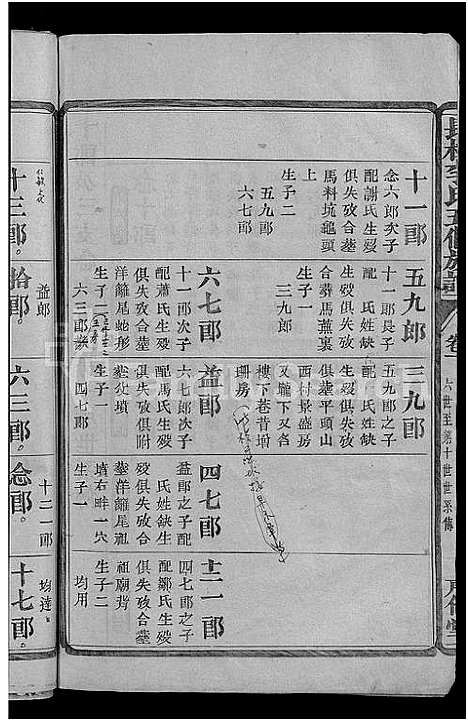 十一郎
念六郎次子
配謝氏生歿
俱失攷合墓
馬料坑龜頭
上
生子二
五九郎
六七郎
五九郎
十一郎長子
配 氏姓缺
生歿俱失攷
合葬馬蕉裏
生子一
三九郎
三九郎
五九郎之子
配 氏姓缺
生歿失攷
俱葬平頭山
西村景盛房
又隴下為
樓下巷昔塸
珊房
六七郎
十一郎次子
配蕭氏生歿
俱失攷合葬
洋籬尾蛇形
生子二
六三郎
益郎
六七郎次子
配馬氏生歿
俱失攷附葬
父墳
生子一
四七郎
四七郎
益郎之子配
氏姓缺生
歿俱失攷合
葬洋籬尾祖
墳右畔一穴
生子一
十二一郎
十二一郎
四七郎之子
配鄒氏生歿
俱失攷合葬
祖廟背
生子二
均用
均達
長林李氏五修族譜
卷一
六世至第十世世系傳
十三郎。
益郎
拾郎。
六三郎。
十二一郎
念郎。
均達
十七郎。